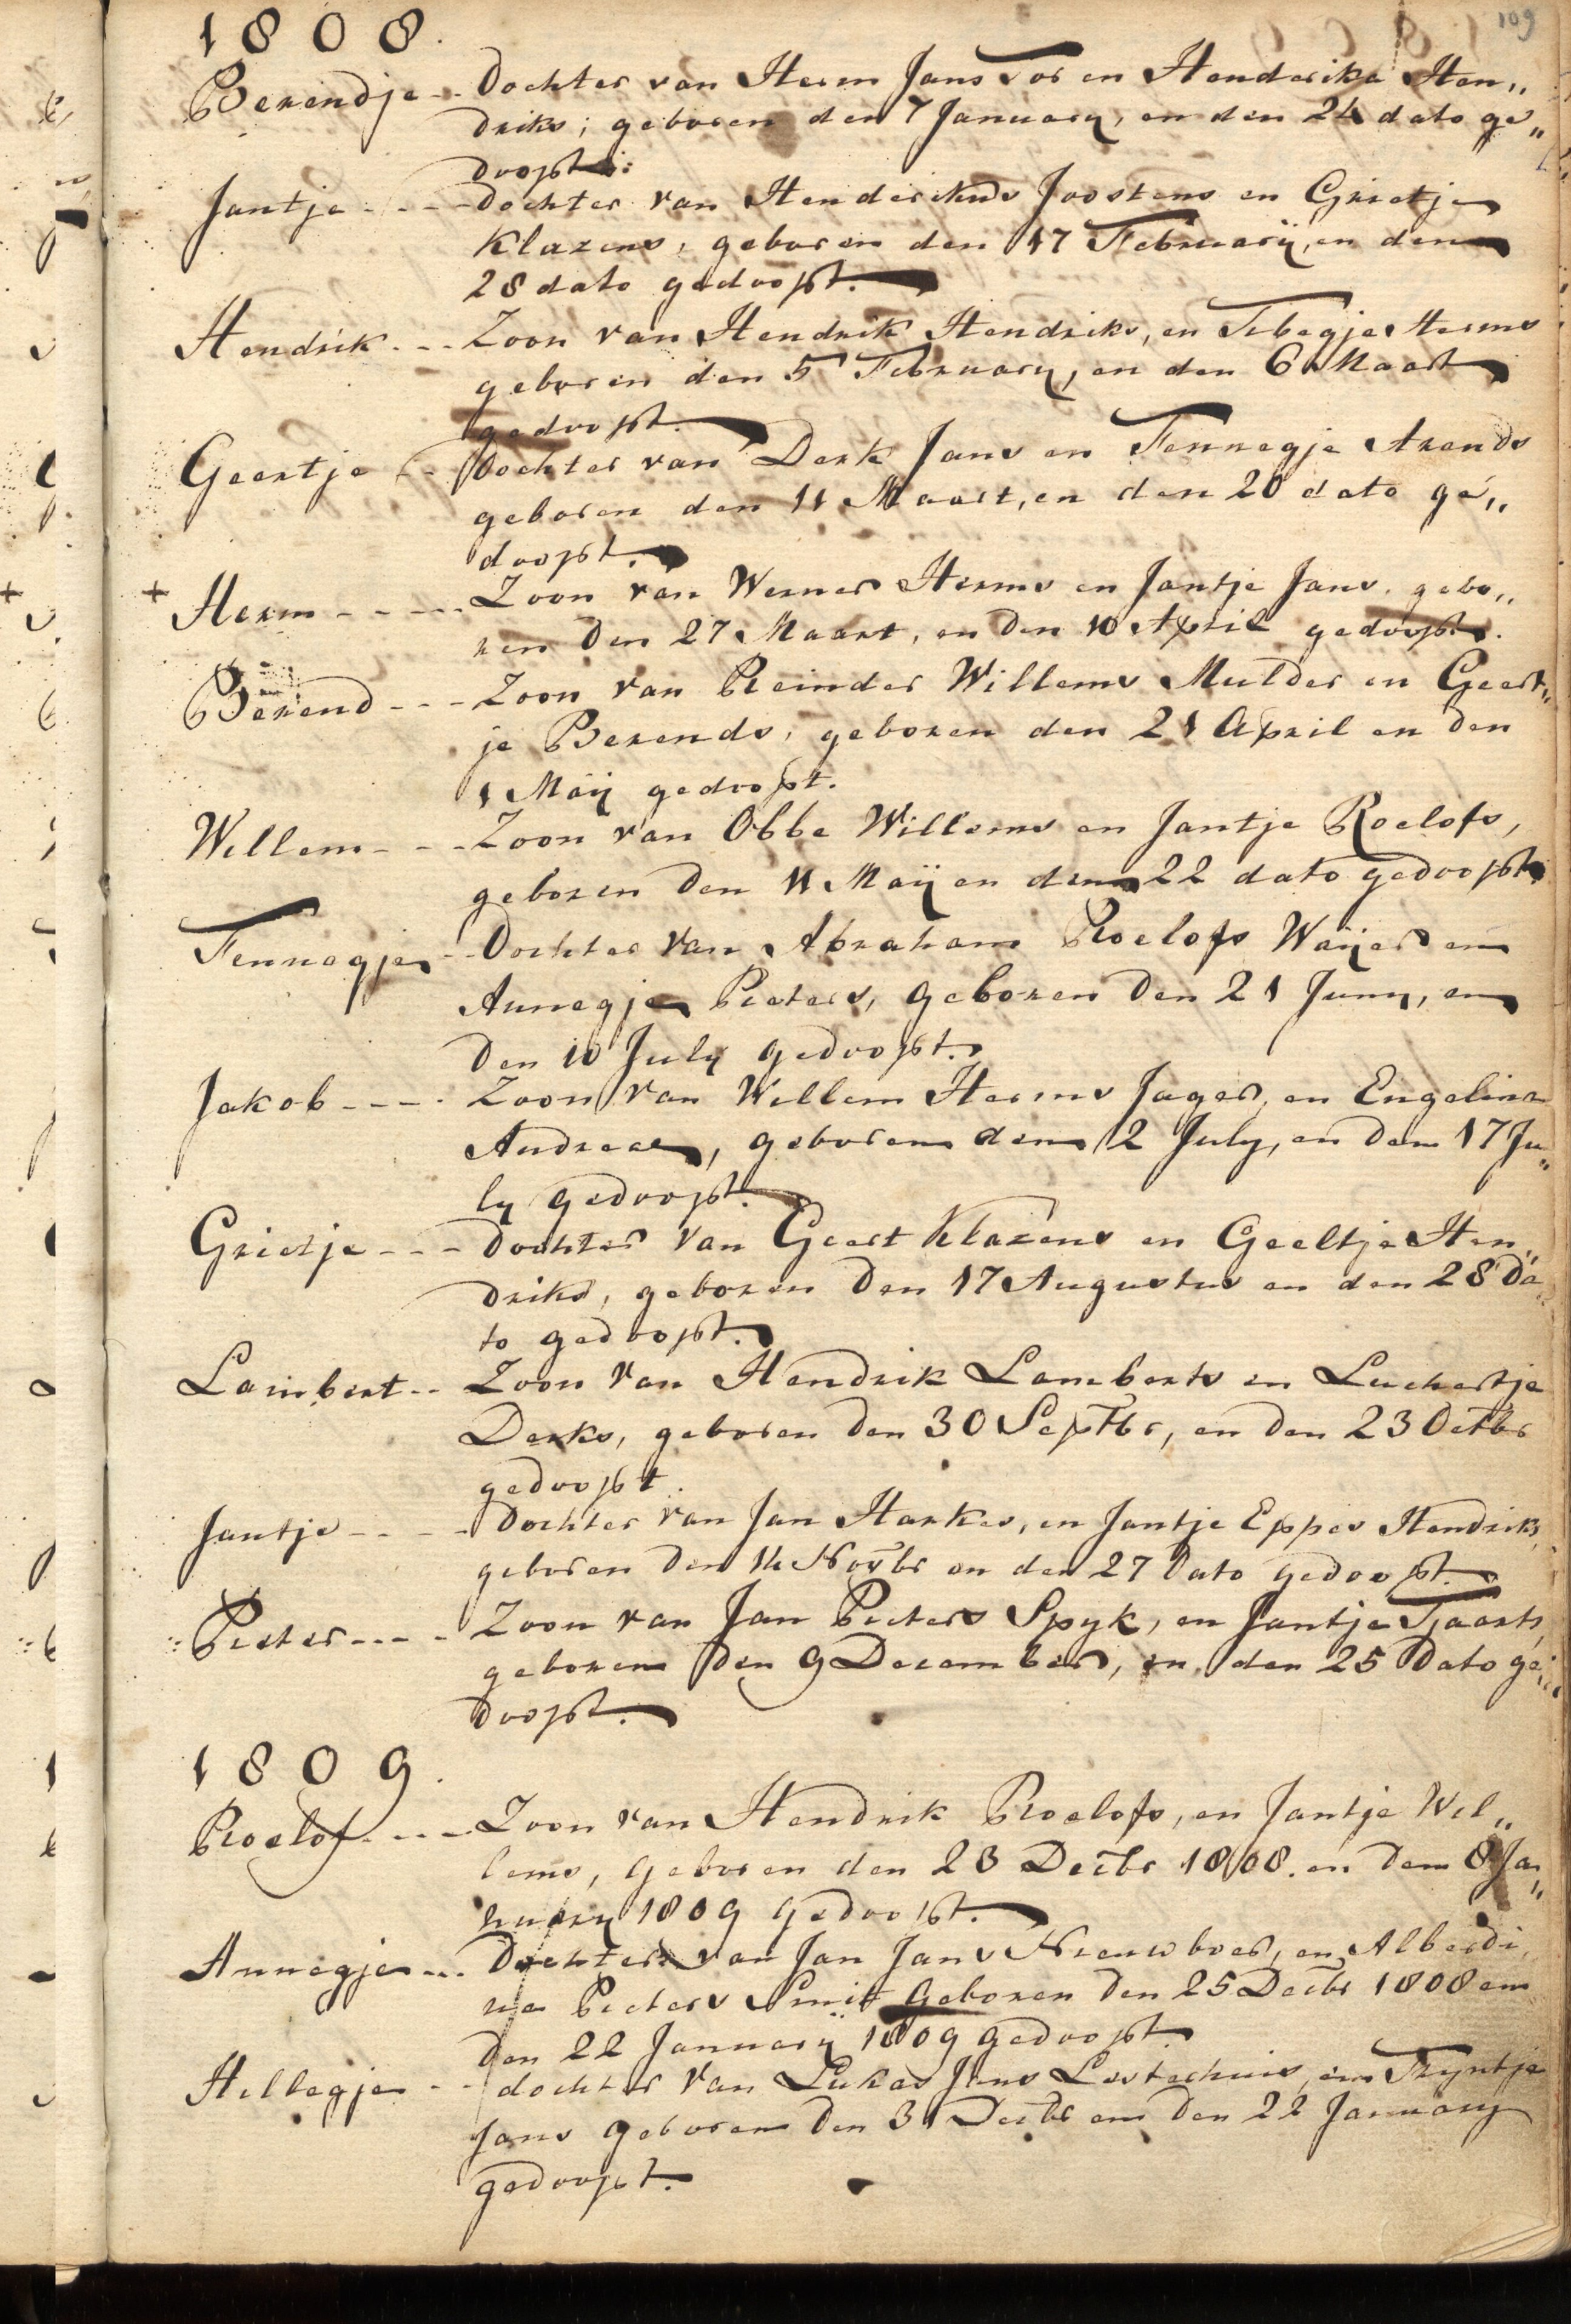 109
1808.
Berendje -- Dochter van Herm Jans Vos en Henderika Hen„
driks; geboren den 7 January, en den 24 dato ge„
doopt.
Jantje ---- Dochter van Henderikus Joostens en Grietje
Klazens, geboren den 17 Februarij, en den
28 dato gedoopt.
Hendrik --- Zoon van Hendrik Hendriks, en Tibegje Herms
geboren den 5 February, en den 6 Maart
gedoopt.
Geertje -- Dochter van Derk Jans en Tennegje Arends
geboren den 11 Maart, en den 20 dato ge„
doopt.
+ Herm ---- Zoon van Werner Herms en Jantje Jans. gebo„
ren den 27 Maart, en den 10 April gedoopt.
Berend --- Zoon van Reinder Willems Mulder en Geert„
je Berends, geboren den 21 April en den
1 Maij gedoopt.
Willem --- Zoon van Obbe Willems en Jantje Roelofs,
geboren den 11 Maij en den 22 dato gedoopt
Tennegje -- Dochter van Abraham Roelofs Waijer en
Annegje Pieters, geboren den 21 Juny, en
den 10 July gedoopt.
Jakob ---- Zoon van Willem Herms Jager, en Engelina
Andreae, geboren den 2 July, en den 17 Ju„
ly gedoopt.
Grietje --- Dochter van Geert Klazens en Geeltje Hen„
driks, geboren den 17 Augustus en den 28 da„
to gedoopt.
Lambert -- Zoon van Hendrik Lamberts en Luchertje
Derks, geboren den 30 Septbr, en den 23 Octbr
gedoopt.
Jantje ---- Dochter van Jan Harkes, en Jantje Eppes Hendriks,
geboren den 14 Novbr en den 27 dato gedoopt.
Pieter ---- Zoon van Jan Pieters Spyk, en Jantje Tjaarts,
geboren den 9 December, en den 25 Dato ge„
doopt.
1809.
Roelof ---- Zoon van Hendrik Roelofs, en Jantje Wil„
lems, geboren den 23 Decbr 1808. en den 8 Ja„
nuary 1809 gedoopt.
Annegje --- Dochter van Jan Jans Nieuwboer, en Alberdi„
na Pieters Smit geboren den 25 Decbr 1808 en
den 22 Januarij 1809 gedoopt.
Hillegje -- dochter van Lukas Jans Oosterhuis, en Trijntje
Jans geboren den 31 Decbr en den 22 January
gedoopt.